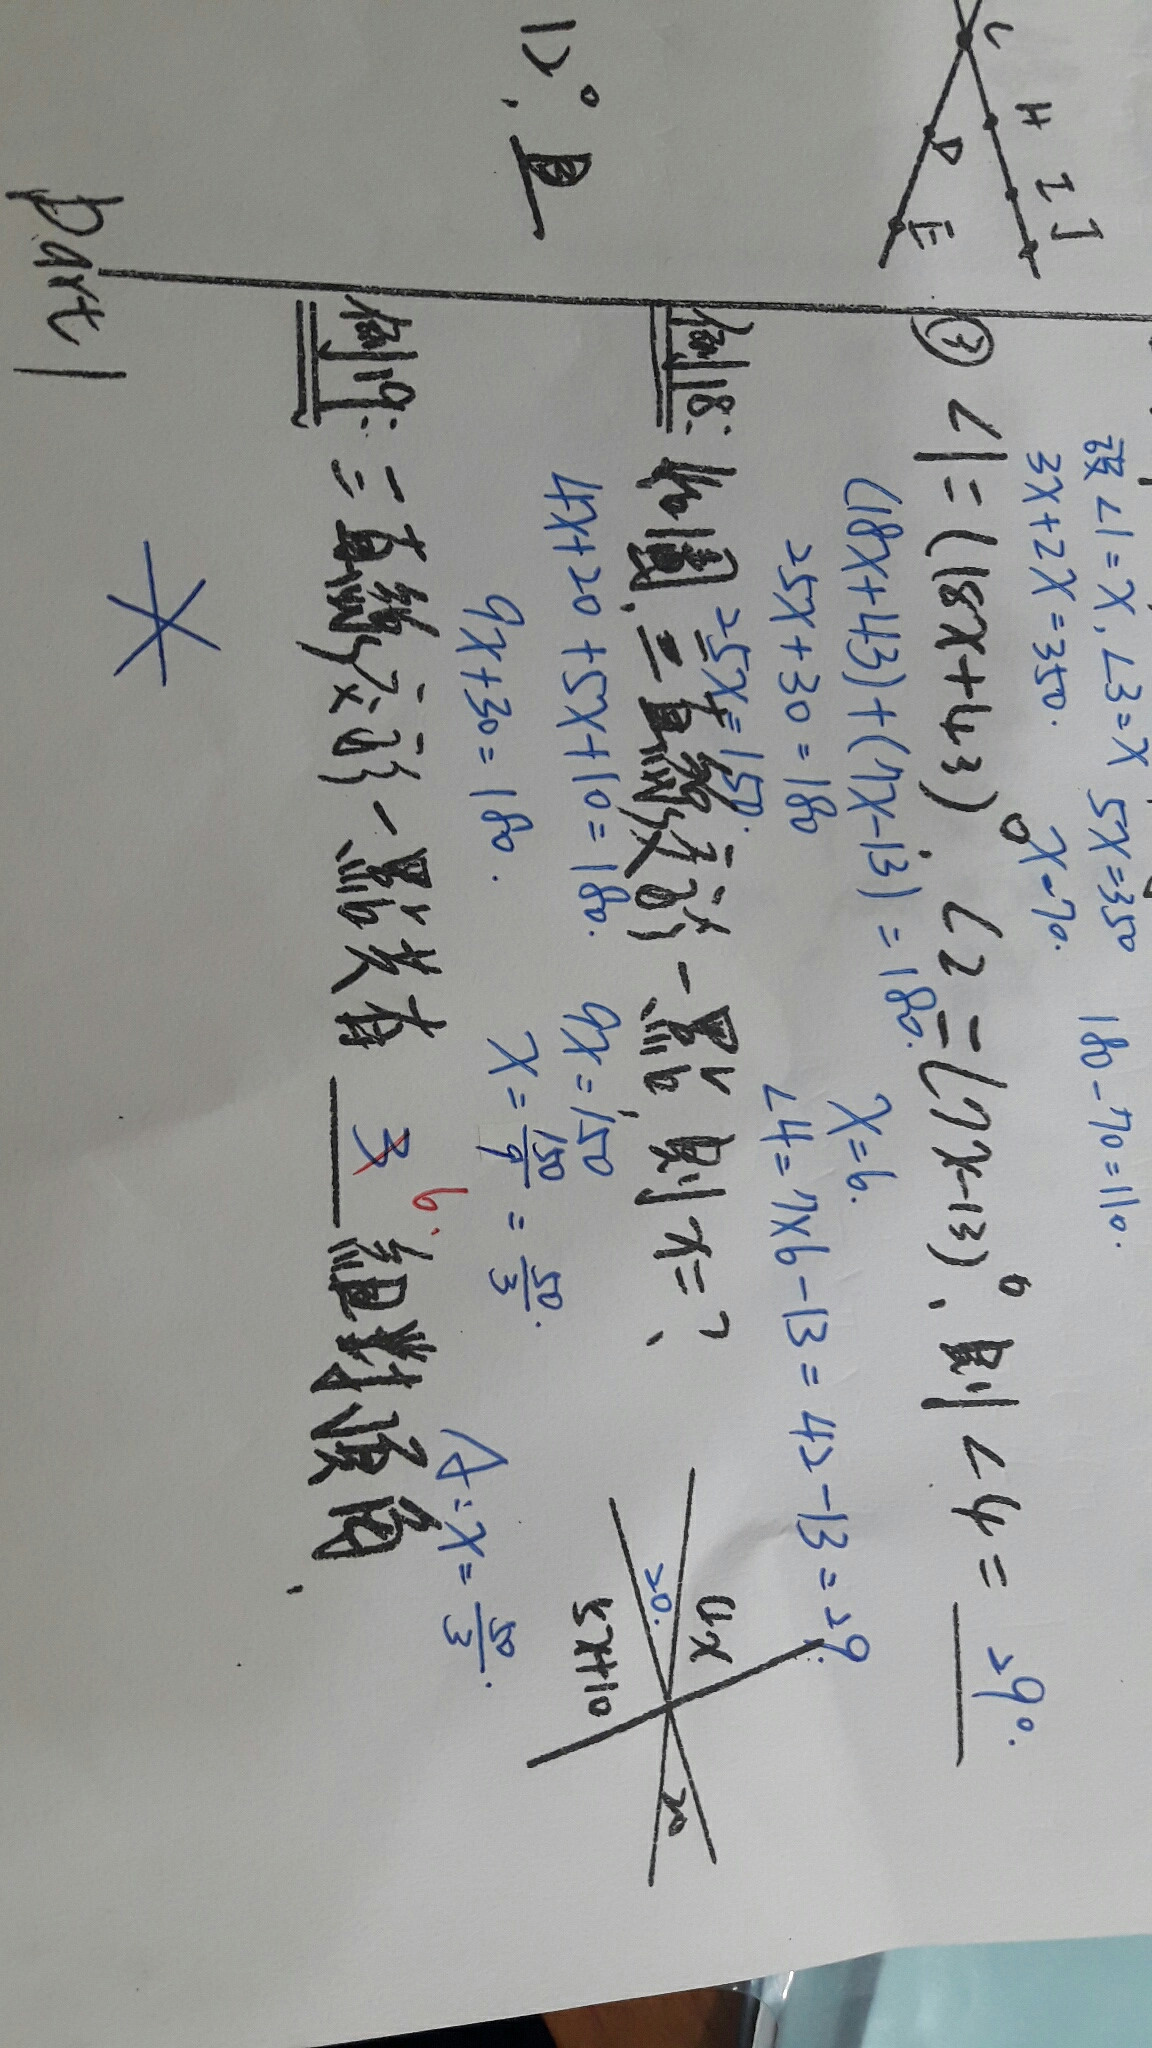 設∠1=x, ∠3=x 5x=350 180-70=110.
3x+2x=350. x=70.
③ ∠1=(18x+43)°, ∠2=(7x-13)°, 則∠4= 29°.
(18x+43)+(7x-13)=180. x=6.
25x+30=180 ∠4=7x6-13=42-13=29.
25x=150.
例18: 如圖,三直線交於一點,則x=?
4x+20+5x+10=180. 9x=150
9x+30=180. x=150/9=50/3.
A:x=50/3.
4x
20.
5x+10
20
例19: 三直線交於一點共有 3 6. 組對頂角.
C
H I J
D E
12°. 直
Part 1